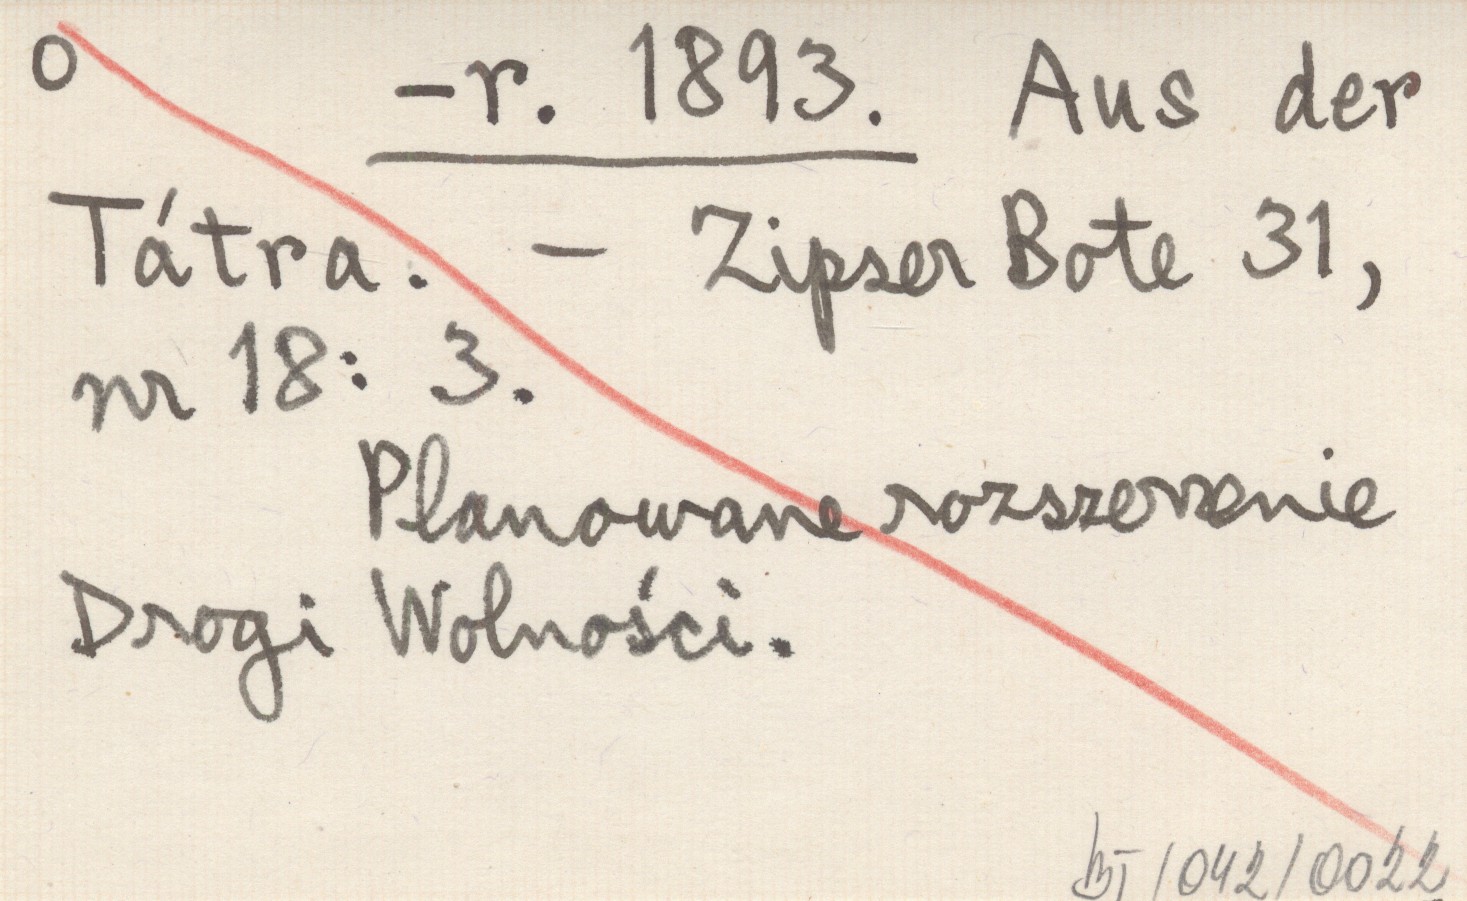 O -r. 1893. Aus der
Tátra. - Zipser Bote 31,
nr 18: 3.
Planowane rozszerzenie
Drogi Wolności.
/042/0022